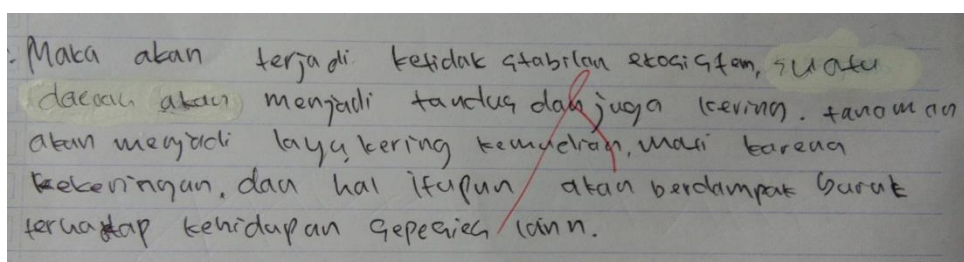 : Maka akan terjadi ketidak stabilan ekosistem, suatu
daerah akan menjadi tandus dan juga kering. tanaman
akan menjadi layu, kering kemudian, mati karena
kekeringan, dan hal itupun akan berdampak buruk
terhadap kehidupan sepesies lainn.